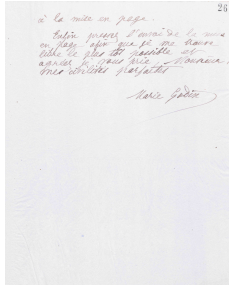 26
à la mise en page.
Enfin pressez l'envoi de la mise
en page afin que je me trouve
libre le plus tôt possible et
agréez je vous prie, Monsieur,
mes civilités parfaites
Marie